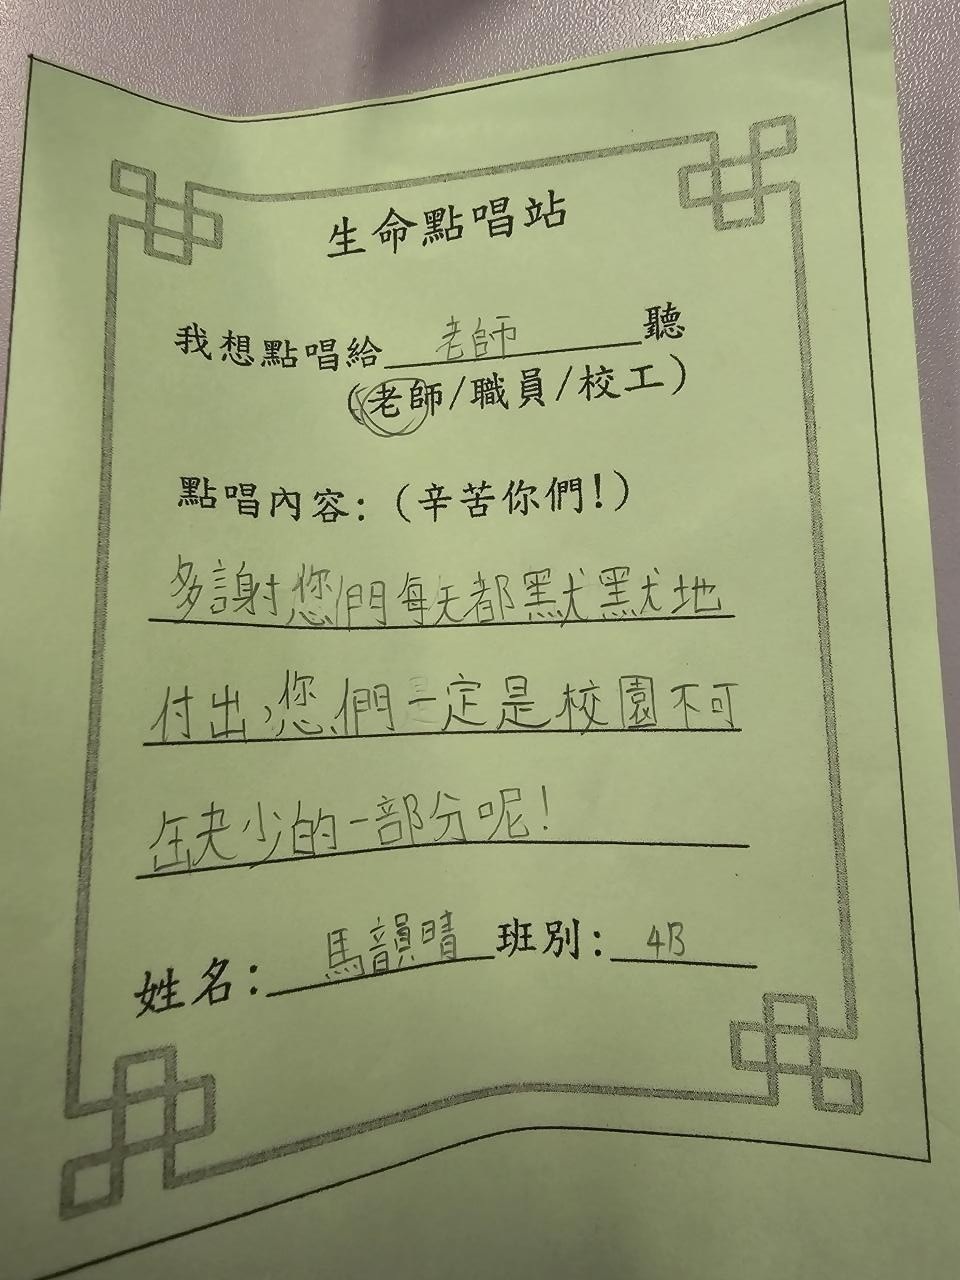 生命點唱站
我想點唱給老師聽
(老師/職員/校工)
點唱內容:(辛苦你們!)
多謝您們每天都默默地
付出,您們一定是校園不可
缺少的一部分呢!
姓名:馬韻晴 班別:4B